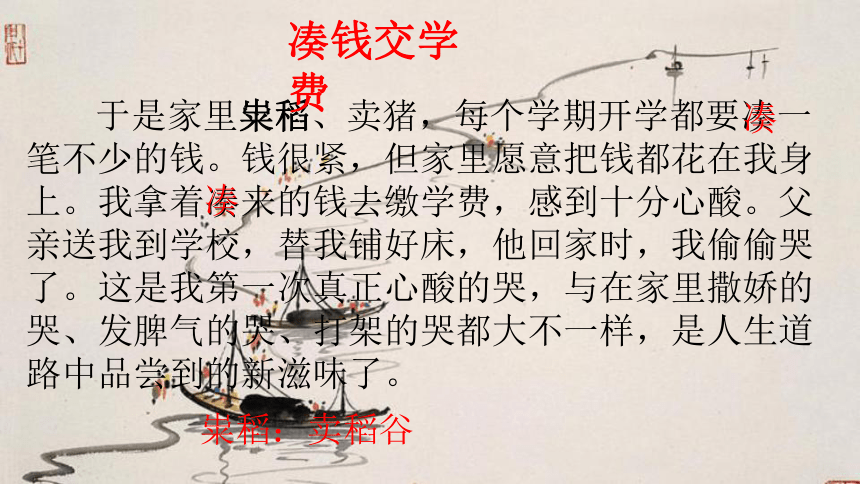 凑钱交学
费
于是家里粜稻、卖猪，每个学期开学都要凑一
笔不少的钱。钱很紧，但家里愿意把钱都花在我身
上。我拿着凑来的钱去缴学费，感到十分心酸。父
亲送我到学校，替我铺好床，他回家时，我偷偷哭
了。这是我第一次真正心酸的哭，与在家里撒娇的
哭、发脾气的哭、打架的哭都大不一样，是人生道
路中品尝到的新滋味了。
粜稻：卖稻谷